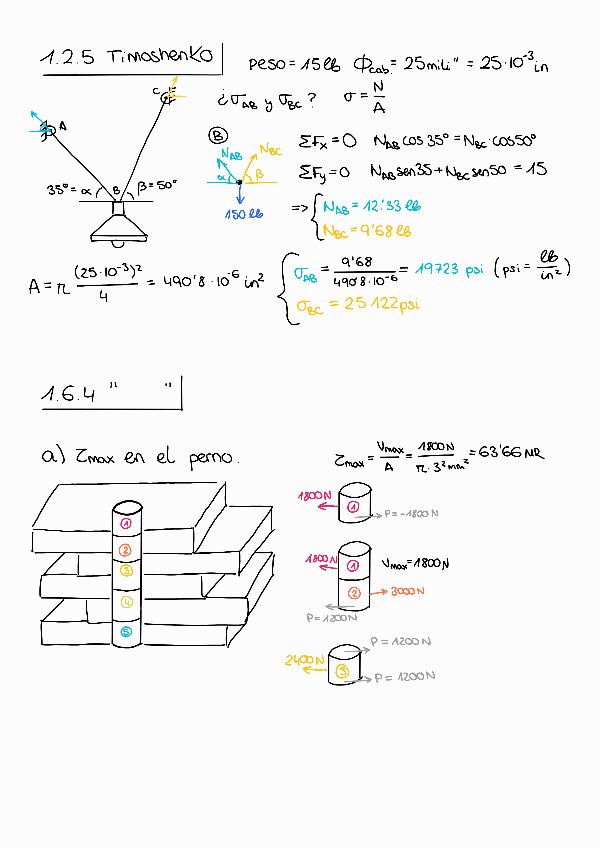 1.2.5 Timoshenko
peso = 15 lb Φcab. = 25 mili" = 25·10⁻³ in
¿ σAB y σBC ? σ = N/A
C
A
35° = α B β = 50°
B
NAB NBC
α β
150 lb
ΣFx = 0 NAB cos 35° = NBC · cos 50°
ΣFy = 0 NAB sen 35 + NBC sen 50 = 15
=> { NAB = 12'33 lb
NBC = 9'68 lb
A = π (25·10⁻³)²/4 = 490'8 · 10⁻⁶ in²
σAB = 9'68/490'8·10⁻⁶ = 19723 psi (psi = lb/in²)
σBC = 25122 psi
1.6.4 " "
a) τmax en el perno.
τmax = Vmax/A = 1800 N/π·3² mm² = 63'66 MPa
1
2
3
4
5
1800 N
1
P = -1800 N
1800 N
1
Vmax = 1800 N
2
3000 N
P = 1200 N
P = 1200 N
2400 N
3
P = 1200 N